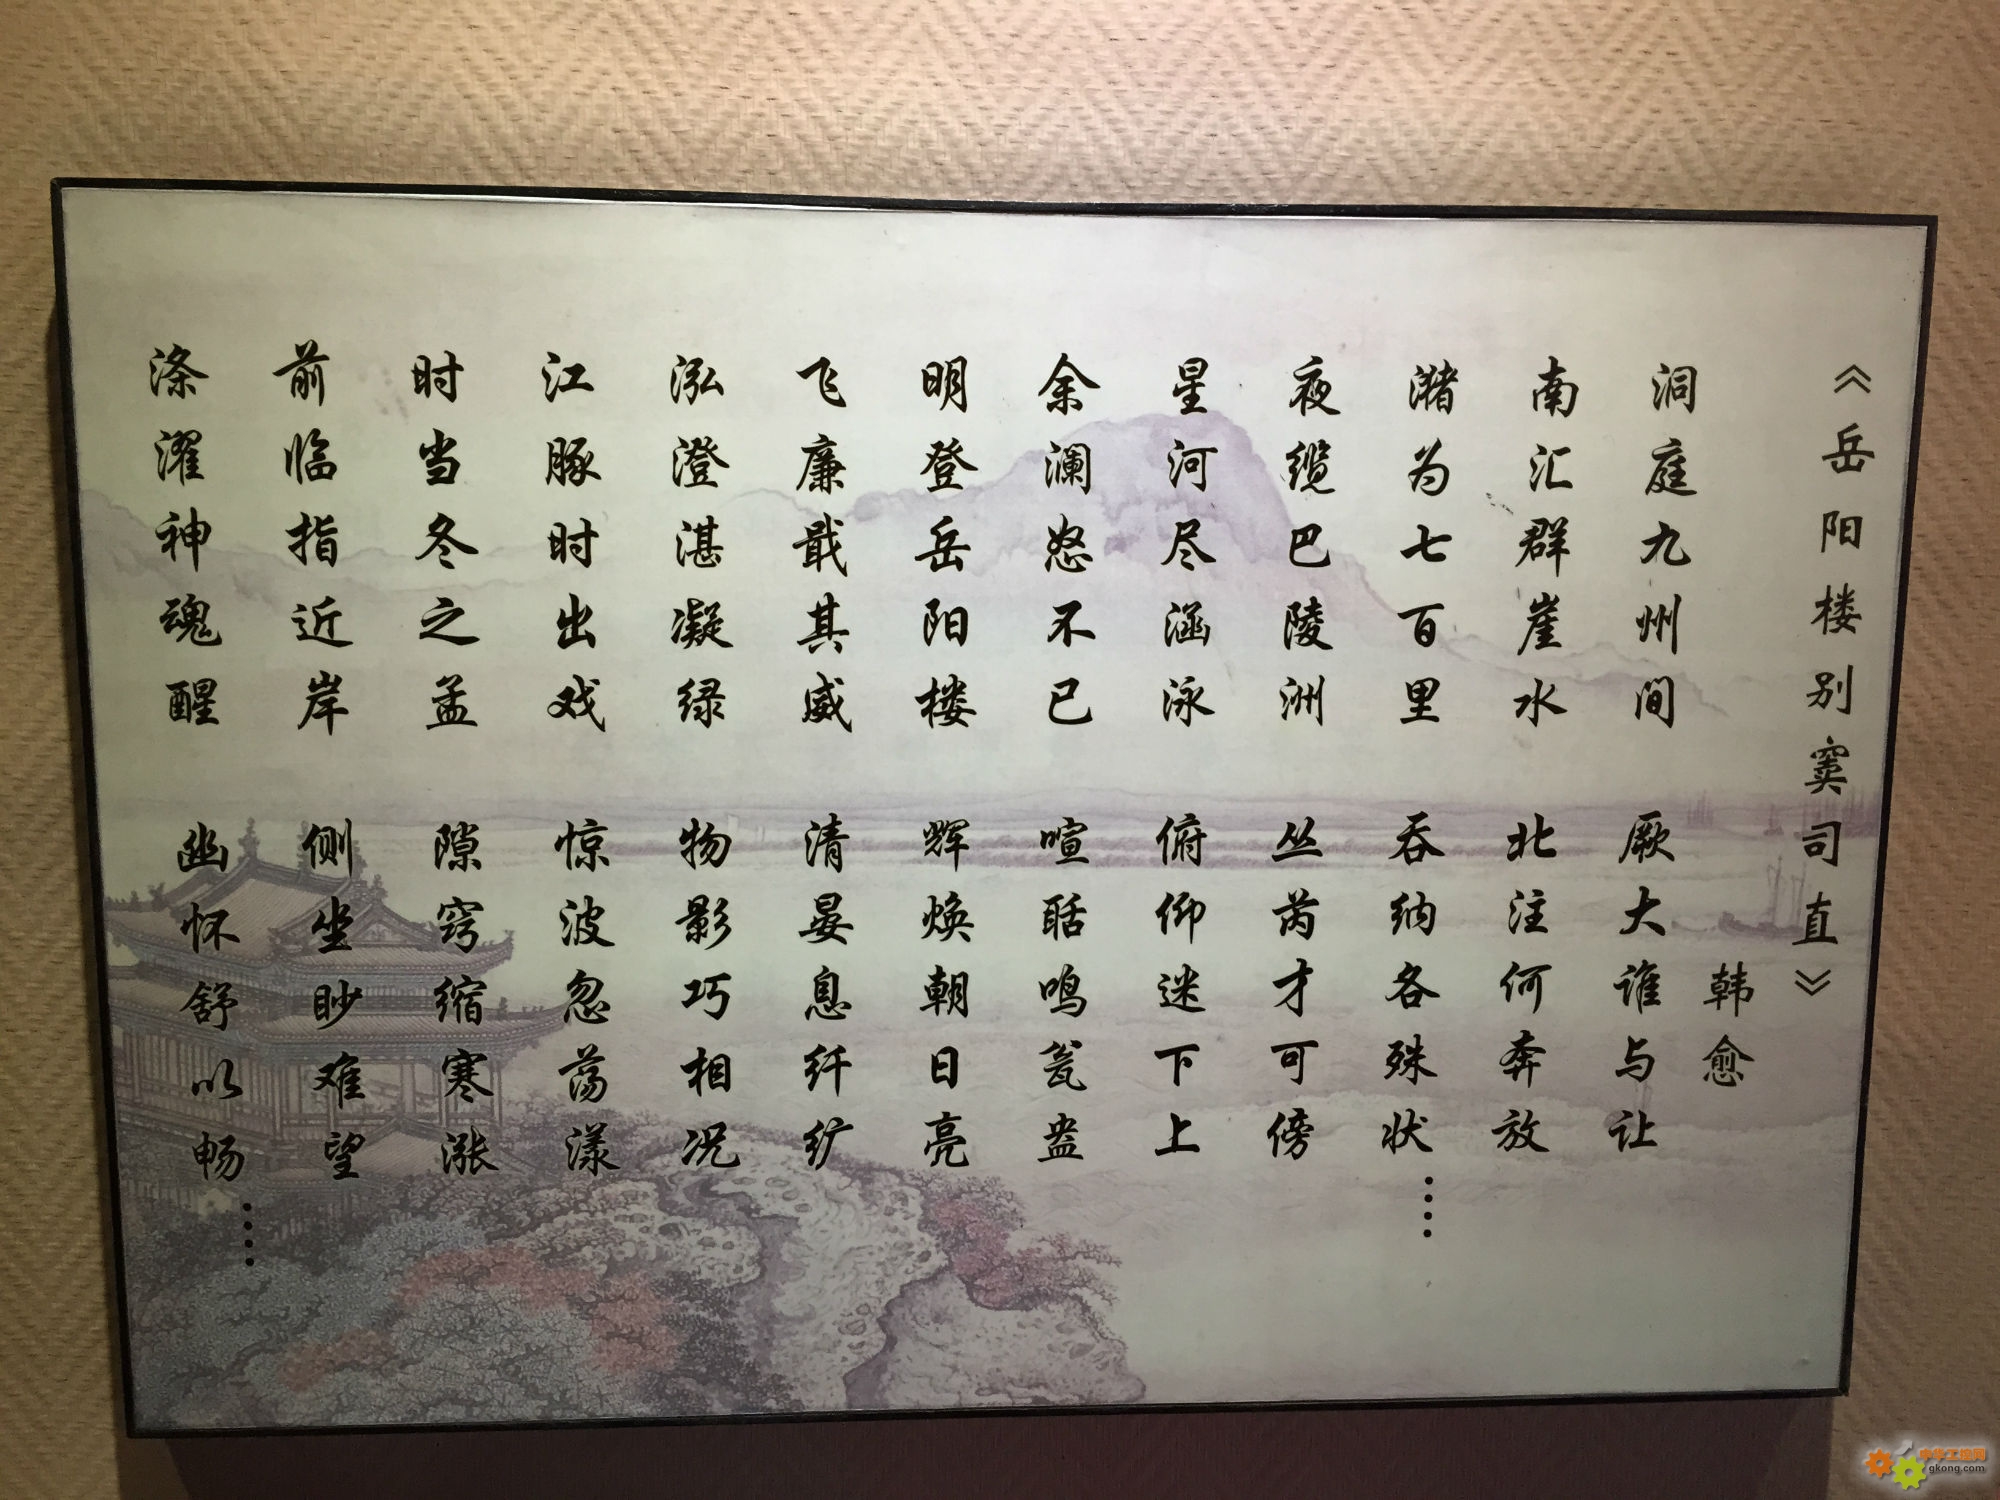 《岳阳楼别窦司直》
韩愈
洞庭九州间 厥大谁与让
南汇群崖水 北注何奔放
潴为七百里 吞纳各殊状……
夜缆巴陵洲 丛芮才可傍
星河尽涵泳 俯仰迷下上
余澜怒不已 喧聒鸣瓮盎
明登岳阳楼 辉焕朝日亮
飞廉戢其威 清晏息纤纩
泓澄湛凝绿 物影巧相况
江豚时出戏 惊波忽荡漾
时当冬之孟 隙窍缩寒涨
前临指近岸 侧坐眇难望
涤濯神魂醒 幽怀舒以畅……
中华工控网
gkong.com